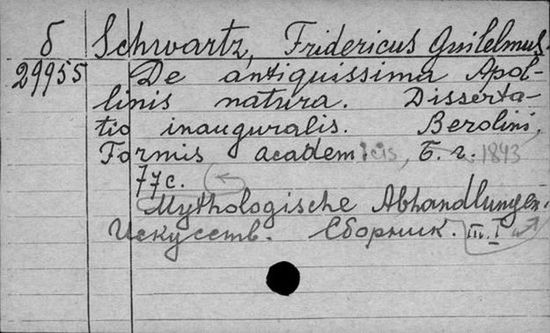 б Schwartz, Fridericus Guilelmus.
29955 De antiquissima Apol-
linis natura. Disserta-
tio inauguralis. Berolini,
Formis academicis, Б. г. 1843
77 с.
Mythologische Abhandlungen.
Искусств. Сборник. III. I